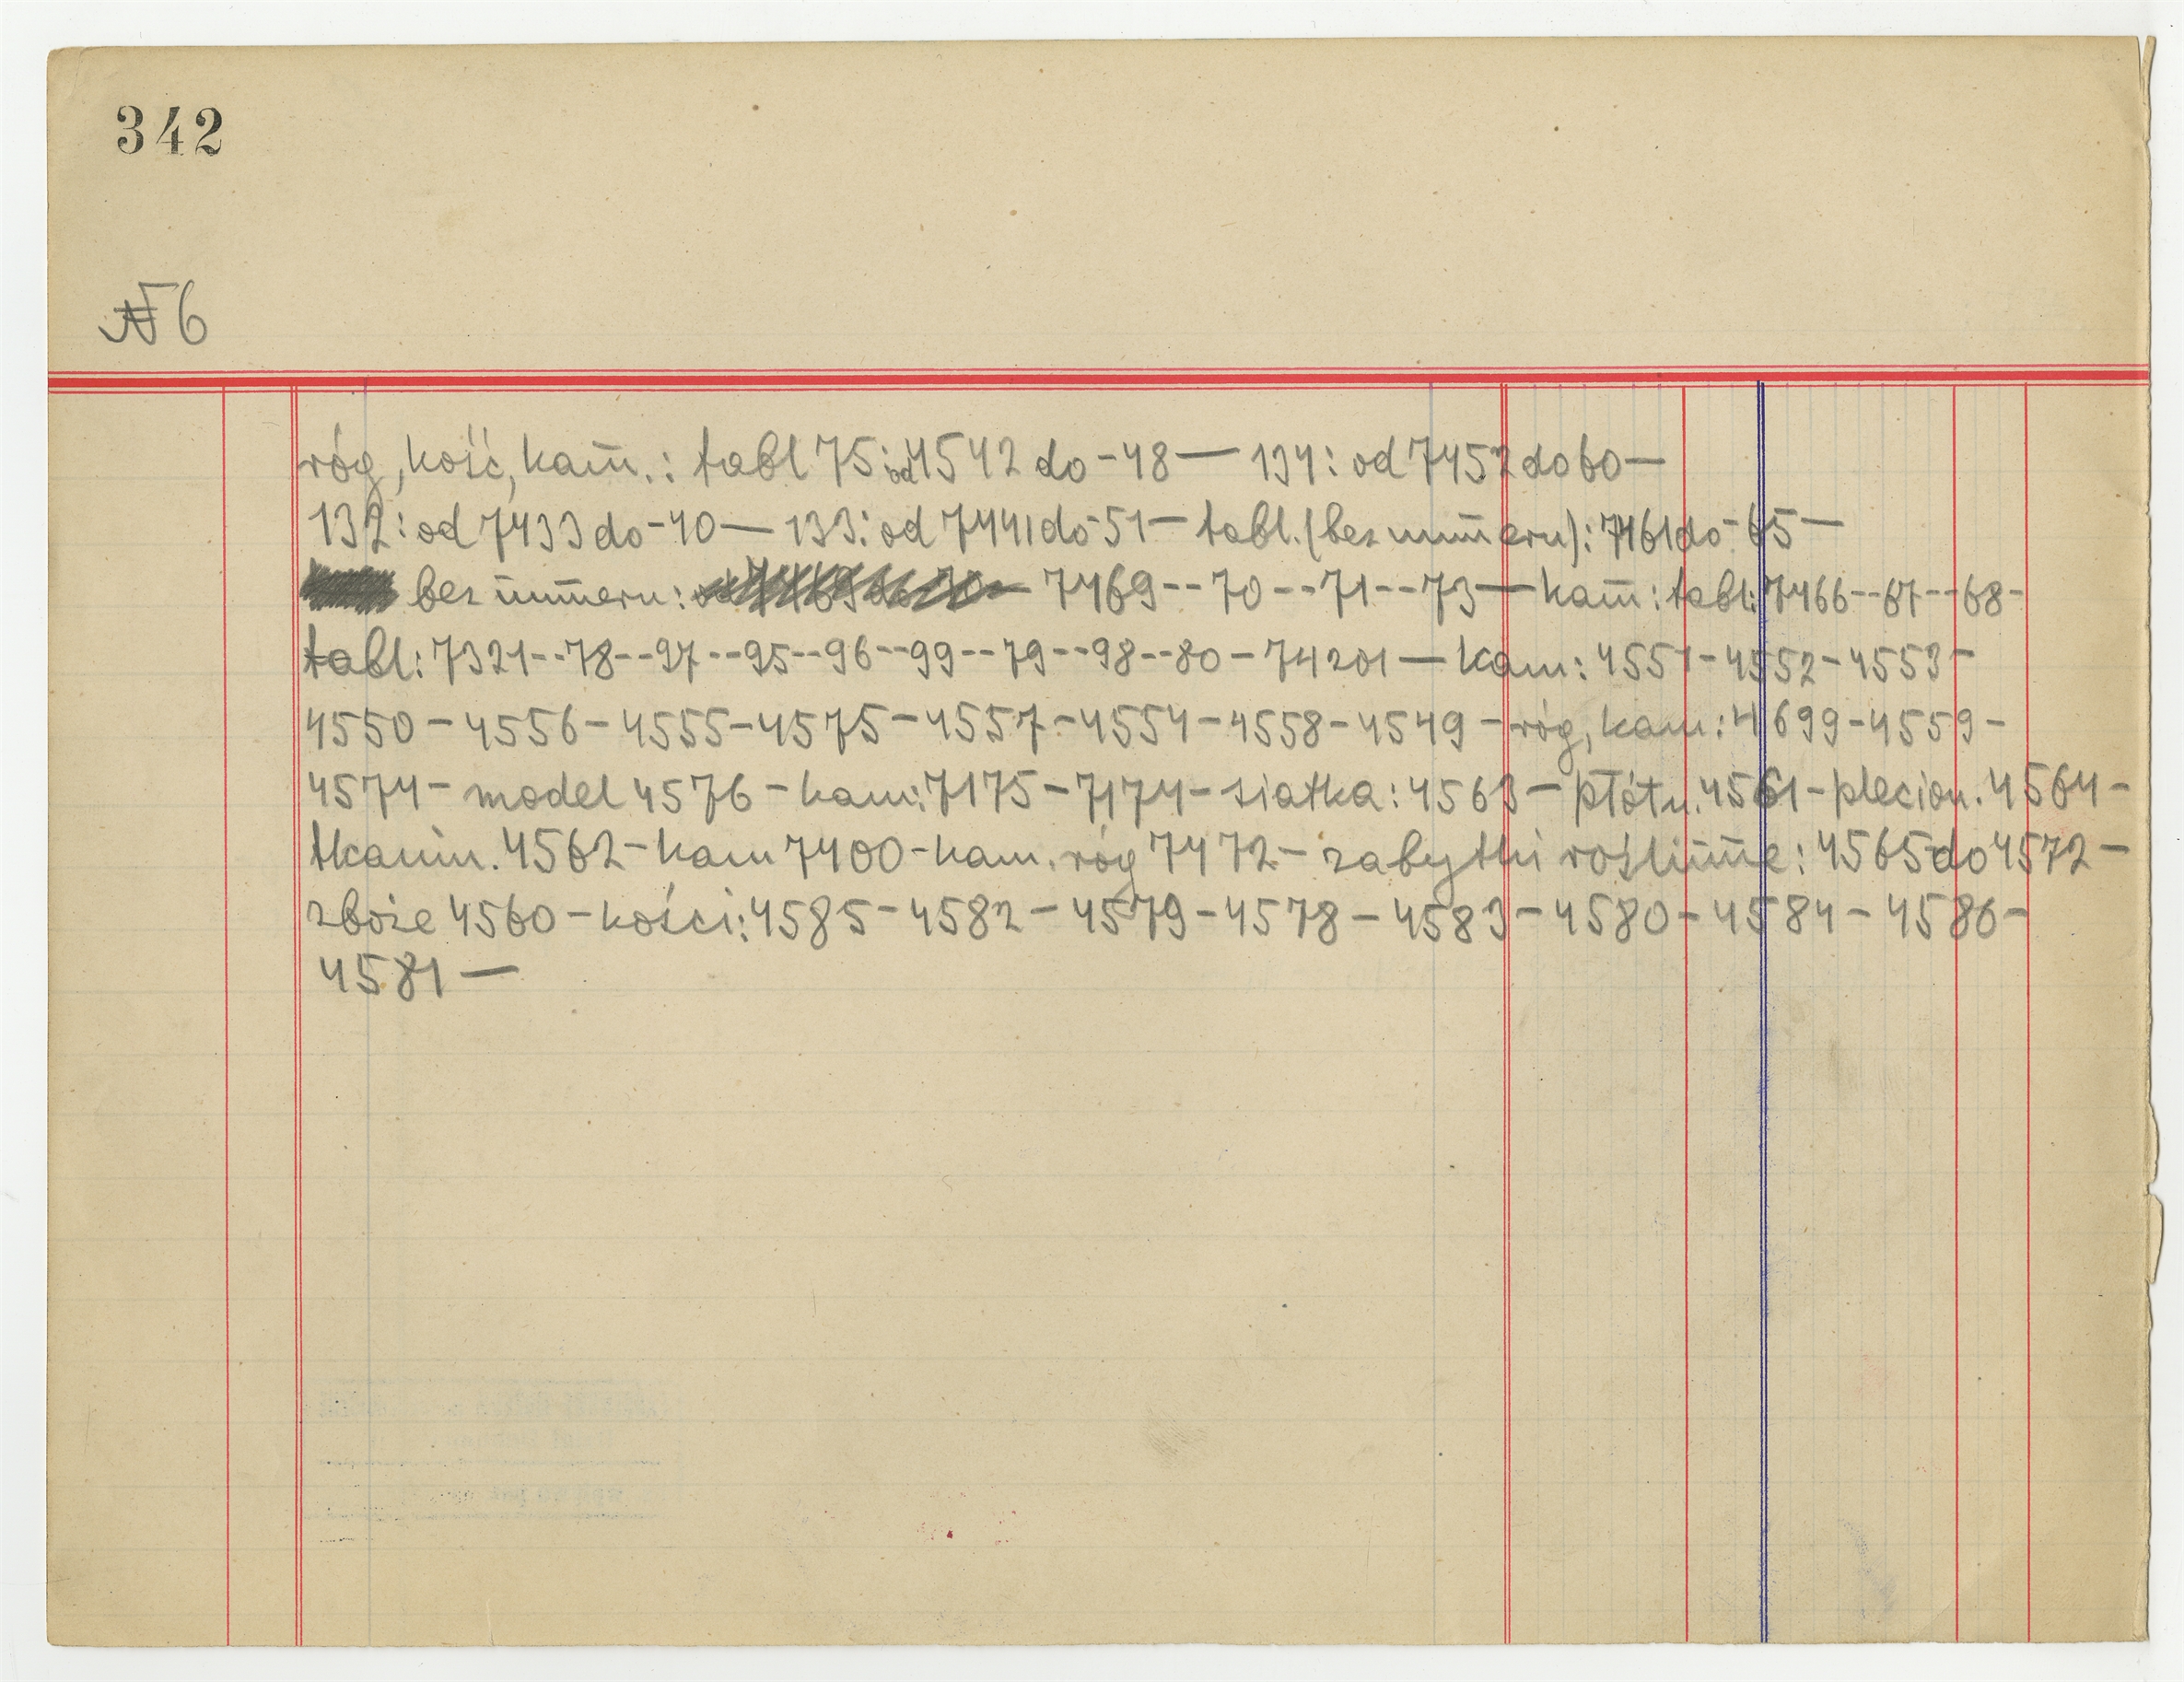 342
№ 6
róg, kość, kam̄.: tabl 75: od 4542 do -48 — 134: od 7452 do 60 —
132: od 7433 do -40 — 133: od 7441 do -51 — tabl. (bez num̄eru): 7461 do -65 —
bez num̄eru: 7469 -- 70 -- 71 -- 73 — kam̄: tabl: 7466 -- 67 -- 68 -
tabl: 7321 -- 78 -- 97 -- 95 -- 96 -- 99 -- 79 -- 98 -- 80 - 74201 — kam: 4551 - 4552 - 4553 -
4550 - 4556 - 4555 - 4575 - 4557 - 4554 - 4558 - 4549 - róg, kam: 4699 - 4559 -
4574 - model 4576 - kam: 7175 - 7174 - siatka: 4563 - płótn. 4561 - plecion. 4564 -
tkanin. 4562 - kam 7400 - kam. róg 7472 - zabytki roślinne: 4565 do 4572 -
zboże 4560 - kości: 4585 - 4582 - 4579 - 4578 - 4583 - 4580 - 4584 - 4586 -
4581 —